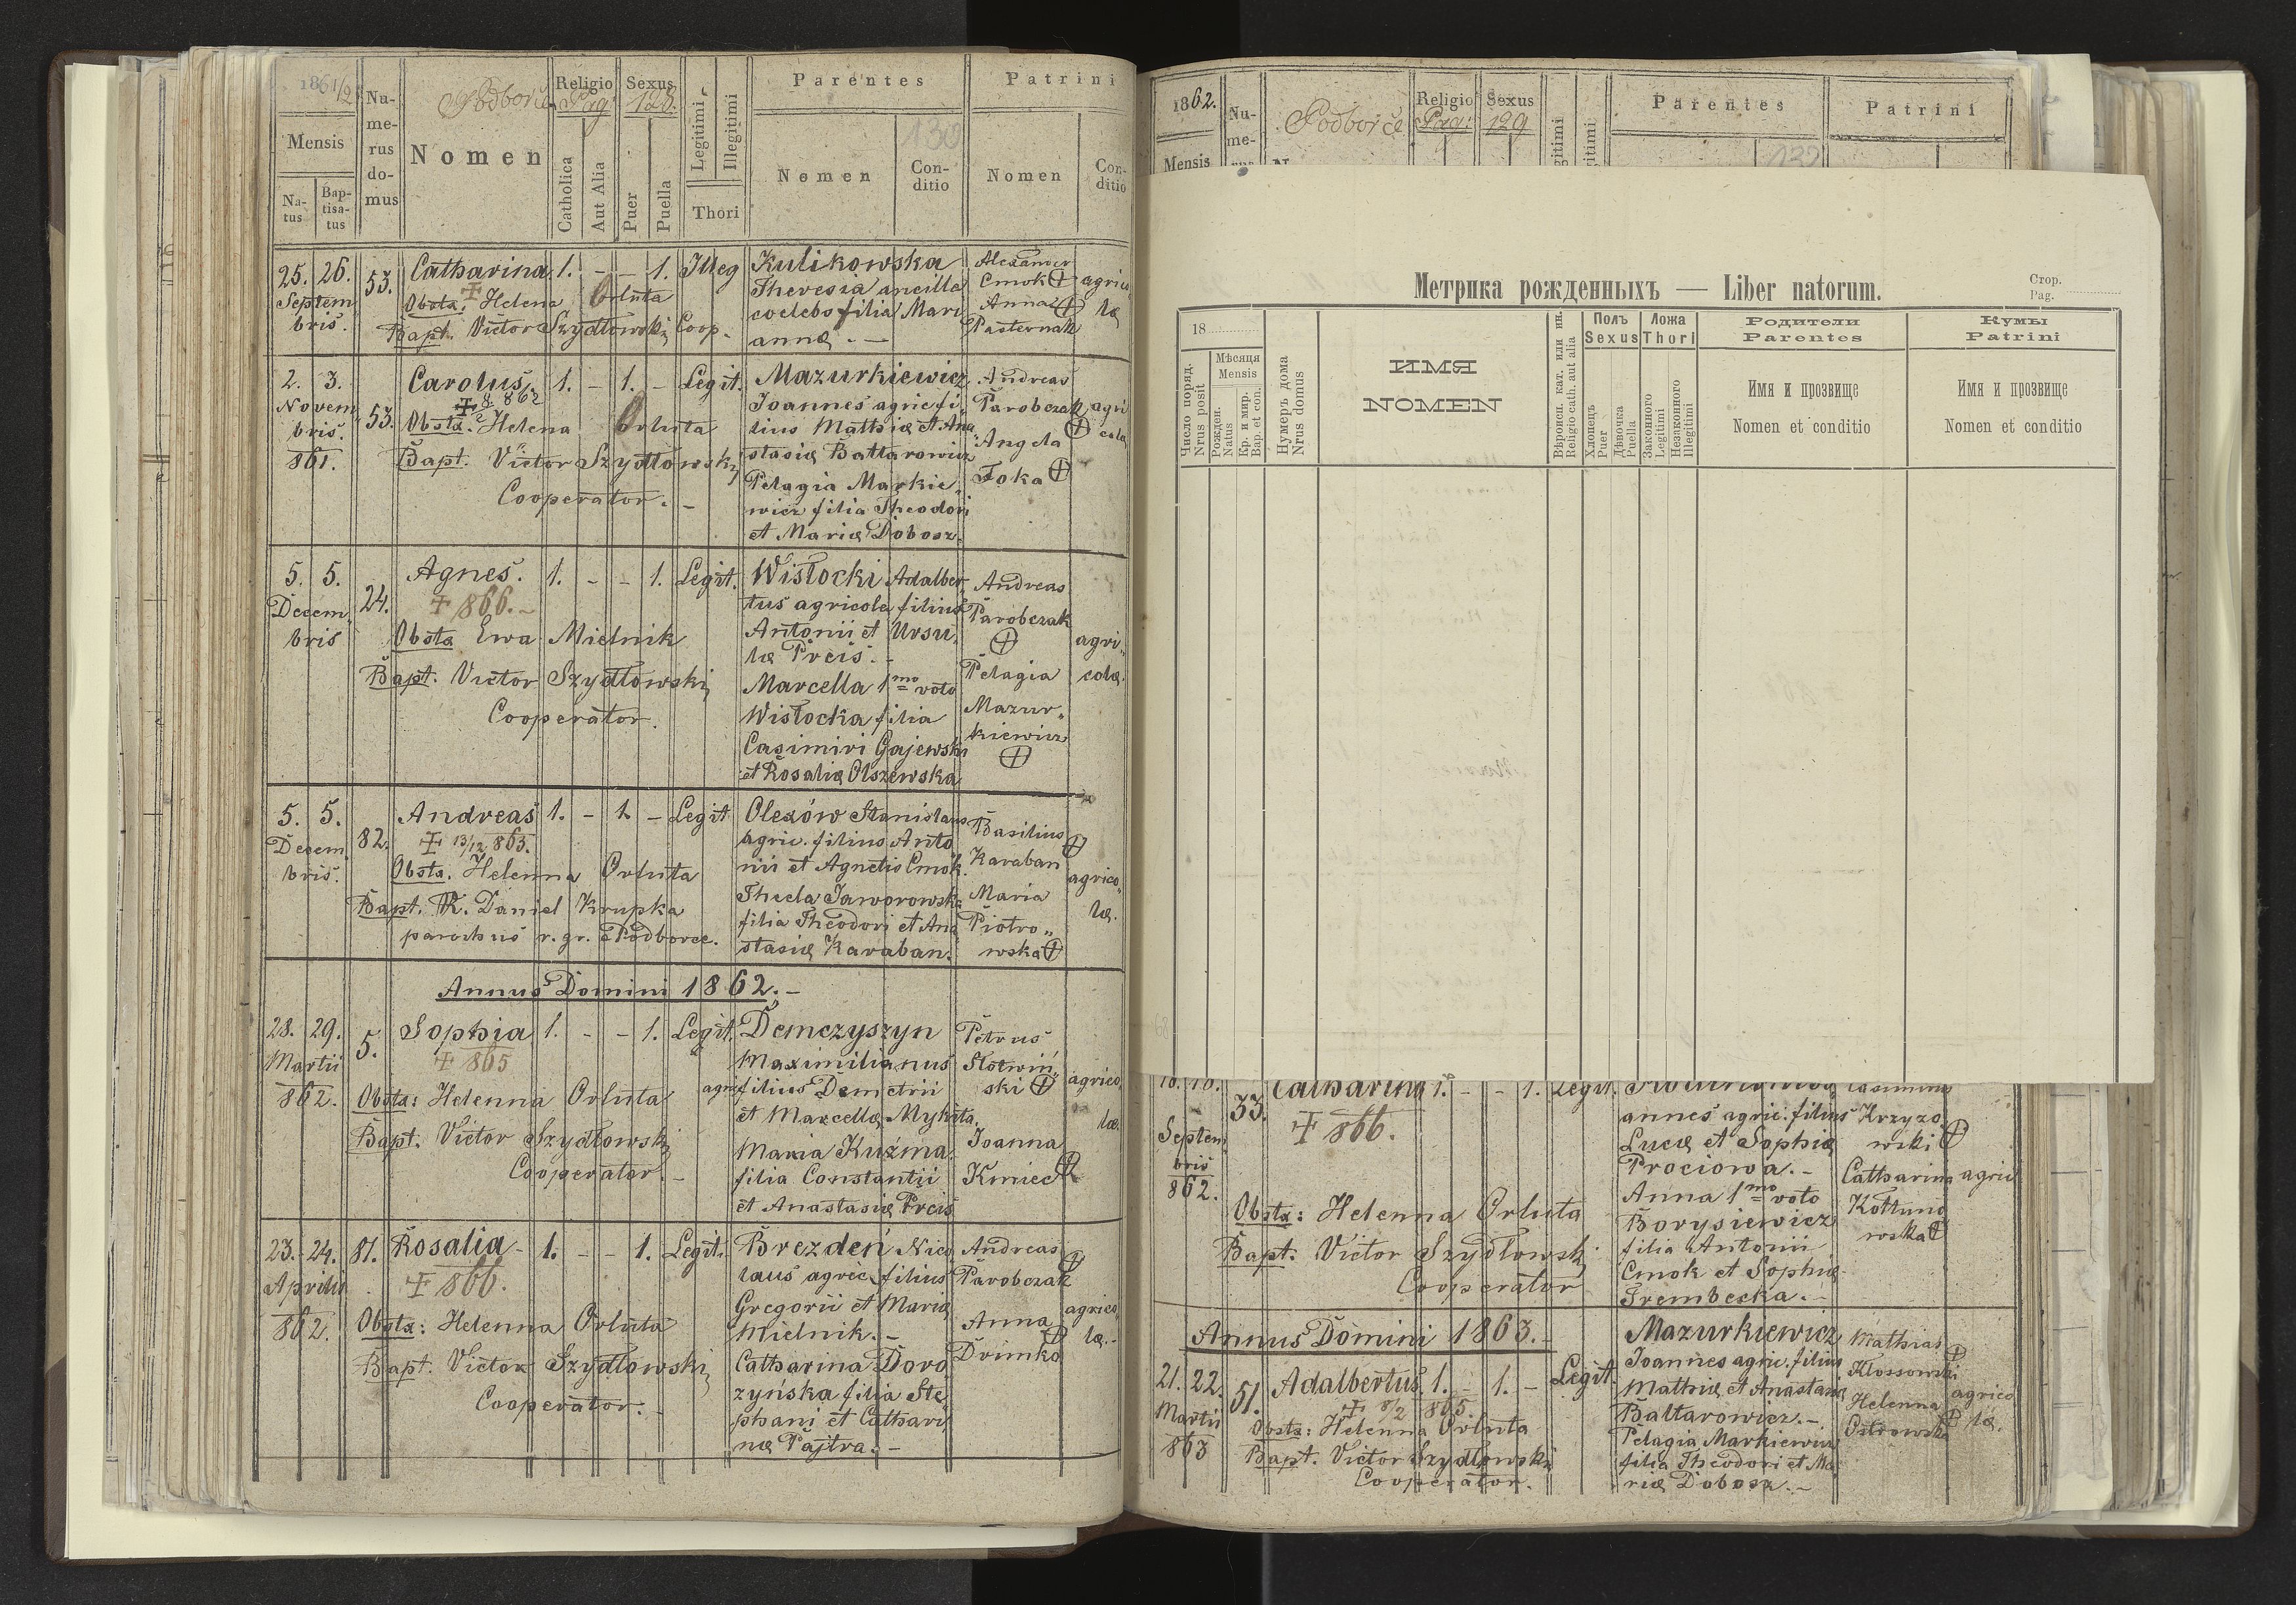 1861/2
Numerus domus
Podborce
Religio
Pag:
Sexus
128.
Legitimi
Illegitimi
Parentes
Patrini
Mensis
Nomen
Catholica
Aut Alia
Puer
Puella
130
Nomen
Conditio
Nomen
Conditio
Natus
Baptisatus
Thori
25. 26. 53. Catharina 1. - - 1. Illeg Kulikowska Alexander
Septem Obsta. Helena Orluta Theresia ancilla Cmok agrico
bris. coelebs filia Mari Anna læ
Bapt. Victor Szydłowski Coop. annæ. - Pasternak
2. 3. Carolus. 1. - 1. - Legit. Mazurkiewicz Andreas
Novem 53. 8/2 862 Joannes agric. fi- Parobczak agri
bris. Obsta. Helena Orluta lius Mathiæ et Ana Angela colæ
861. Bapt. Victor Szydłowski stasiæ Baltarowicz Foka
Cooperator. - Pelagia Markie„
wicz filia Theodori
et Mariæ Dobosz.
5. 5. Agnes. 1. - - 1. Legit. Wisłocki Adalber„ Andreas
Decem„ 24. 866. tus agricola filius Parobczak
bris Obsta Ewa Mielnik Antonii et Ursu„ agri„
læ Preis. - Pelagia colæ.
Bapt. Victor Szydłowski Marcella 1mo voto Mazur„
Cooperator. Wisłocka filia kiewicz
Casimiri Gajewski
et Rosaliæ Olszewska
5. 5. Andreas 1. - 1. - Legit Olexów Stanislaus Basilius
Decem 82. 13/12 863. agric. filius Anto Karaban
bris. Obsta. Helenna Orluta nii et Agnetis Cmok. agrico„
Bapt. R. Daniel Krupka Thecla Jaworowska Maria læ.
parochus r. gr. Podborce. filia Theodori et Ana Piotro„
stasiæ Karaban. wska
Annus Domini 1862. -
28. 29. Sophia 1. - - 1. Legit. Demczyszyn Petrus
Martii 5. 865 Maximilianus Słotwiń„
862. Obsta: Helenna Orluta agric. filius Demetrii ski agrico
Bapt. Victor Szydłowski et Marcellæ Mykita. læ
Cooperator. - Maria Kuźma Joanna
filia Constantii Kmieć
et Anastasiæ Preis
23. 24. 81. Rosalia 1. - - 1. Legit. Brezdeń Nico Andreas
Aprilis 866. laus agric. filius Parobczak
862. Obsta: Helenna Orluta Gregorii et Mariæ Anna agrico
Bapt. Victor Szydłowski Mielnik. - Drimko læ. -
Cooperator. - Catharina Doro
zyńska filia Ste„
phani et Cathari
næ Pajtra. -
1862.
Nu-
me-
Podborce
Religio
Pag:
Sexus
129
Parentes
Patrini
Mensis
Метрика рожденныхъ — Liber natorum.
Стор.
Pag.
18
Число поряд.
Nrus posit
Мѣсяця
Mensis
Рожден.
Natus
Кр. и мир.
Bap. et con.
Нумеръ дома
Nrus domus
ИМЯ
NOMEN
Вѣроисп. кат. или ин.
Religio cath. aut alia
Полъ
Sexus
Хлопецъ
Puer
Дѣвочка
Puella
Ложа
Thori
Законного
Legitimi
Незаконного
Illegitimi
Родители
Parentes
Имя и прозвище
Nomen et conditio
Кумы
Patrini
Имя и прозвище
Nomen et conditio
33. Catharina 1. - - 1. Legit. Casimirus
Septem 866. annes agric. filius Krzyżo
bris Lucæ et Sophiæ wski
862. Prociowa. - Catharina agric
Obsta: Helenna Orluta Anna 1mo voto Kottuno
Bapt. Victor Szydłowski Borysiewicz wska
Cooperator filia Antonii
Cmok et Sophiæ
Trembecka. -
Annus Domini 1863. -
21. 22. 51. Adalbertus 1. - 1. - Legit. Mazurkiewicz Mathias
Martii 8/2 865. Joannes agric. filius Klossowski
863 Obsta: Helenna Orluta Mathiæ et Anastasiæ Helenna agrico
Bapt. Victor Szydłowski Baltarowicz. - Ostrowska læ.
Cooperator. Pelagia Markiewicz
filia Theodori et Ma
riæ Dobosz. -